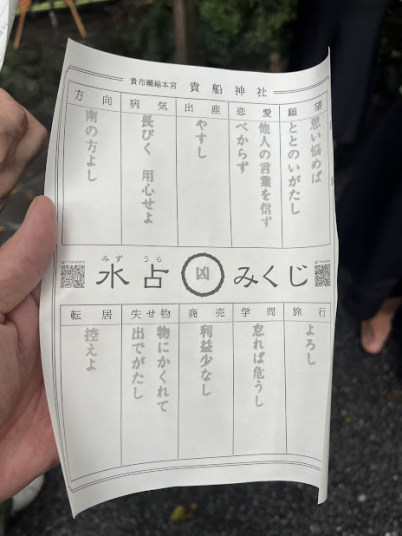 貴布禰総本宮 貴船神社
願望
思い悩めば
ととのいがたし
恋愛
他人の言葉を信ず
べからず
出産
やすし
病気
長びく 用心せよ
方向
南の方よし
みず うら
水占 凶 みくじ
旅行
よろし
学問
怠れば危うし
商売
利益少なし
失せ物
物にかくれて
出でがたし
転居
控えよ